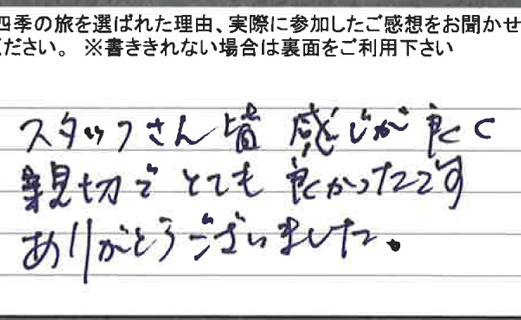 四季の旅を選ばれた理由、実際に参加したご感想をお聞かせ
ください。 ※書ききれない場合は裏面をご利用下さい
スタッフさん皆 感じが良く
親切で とても 良かったです
ありがとうございました。